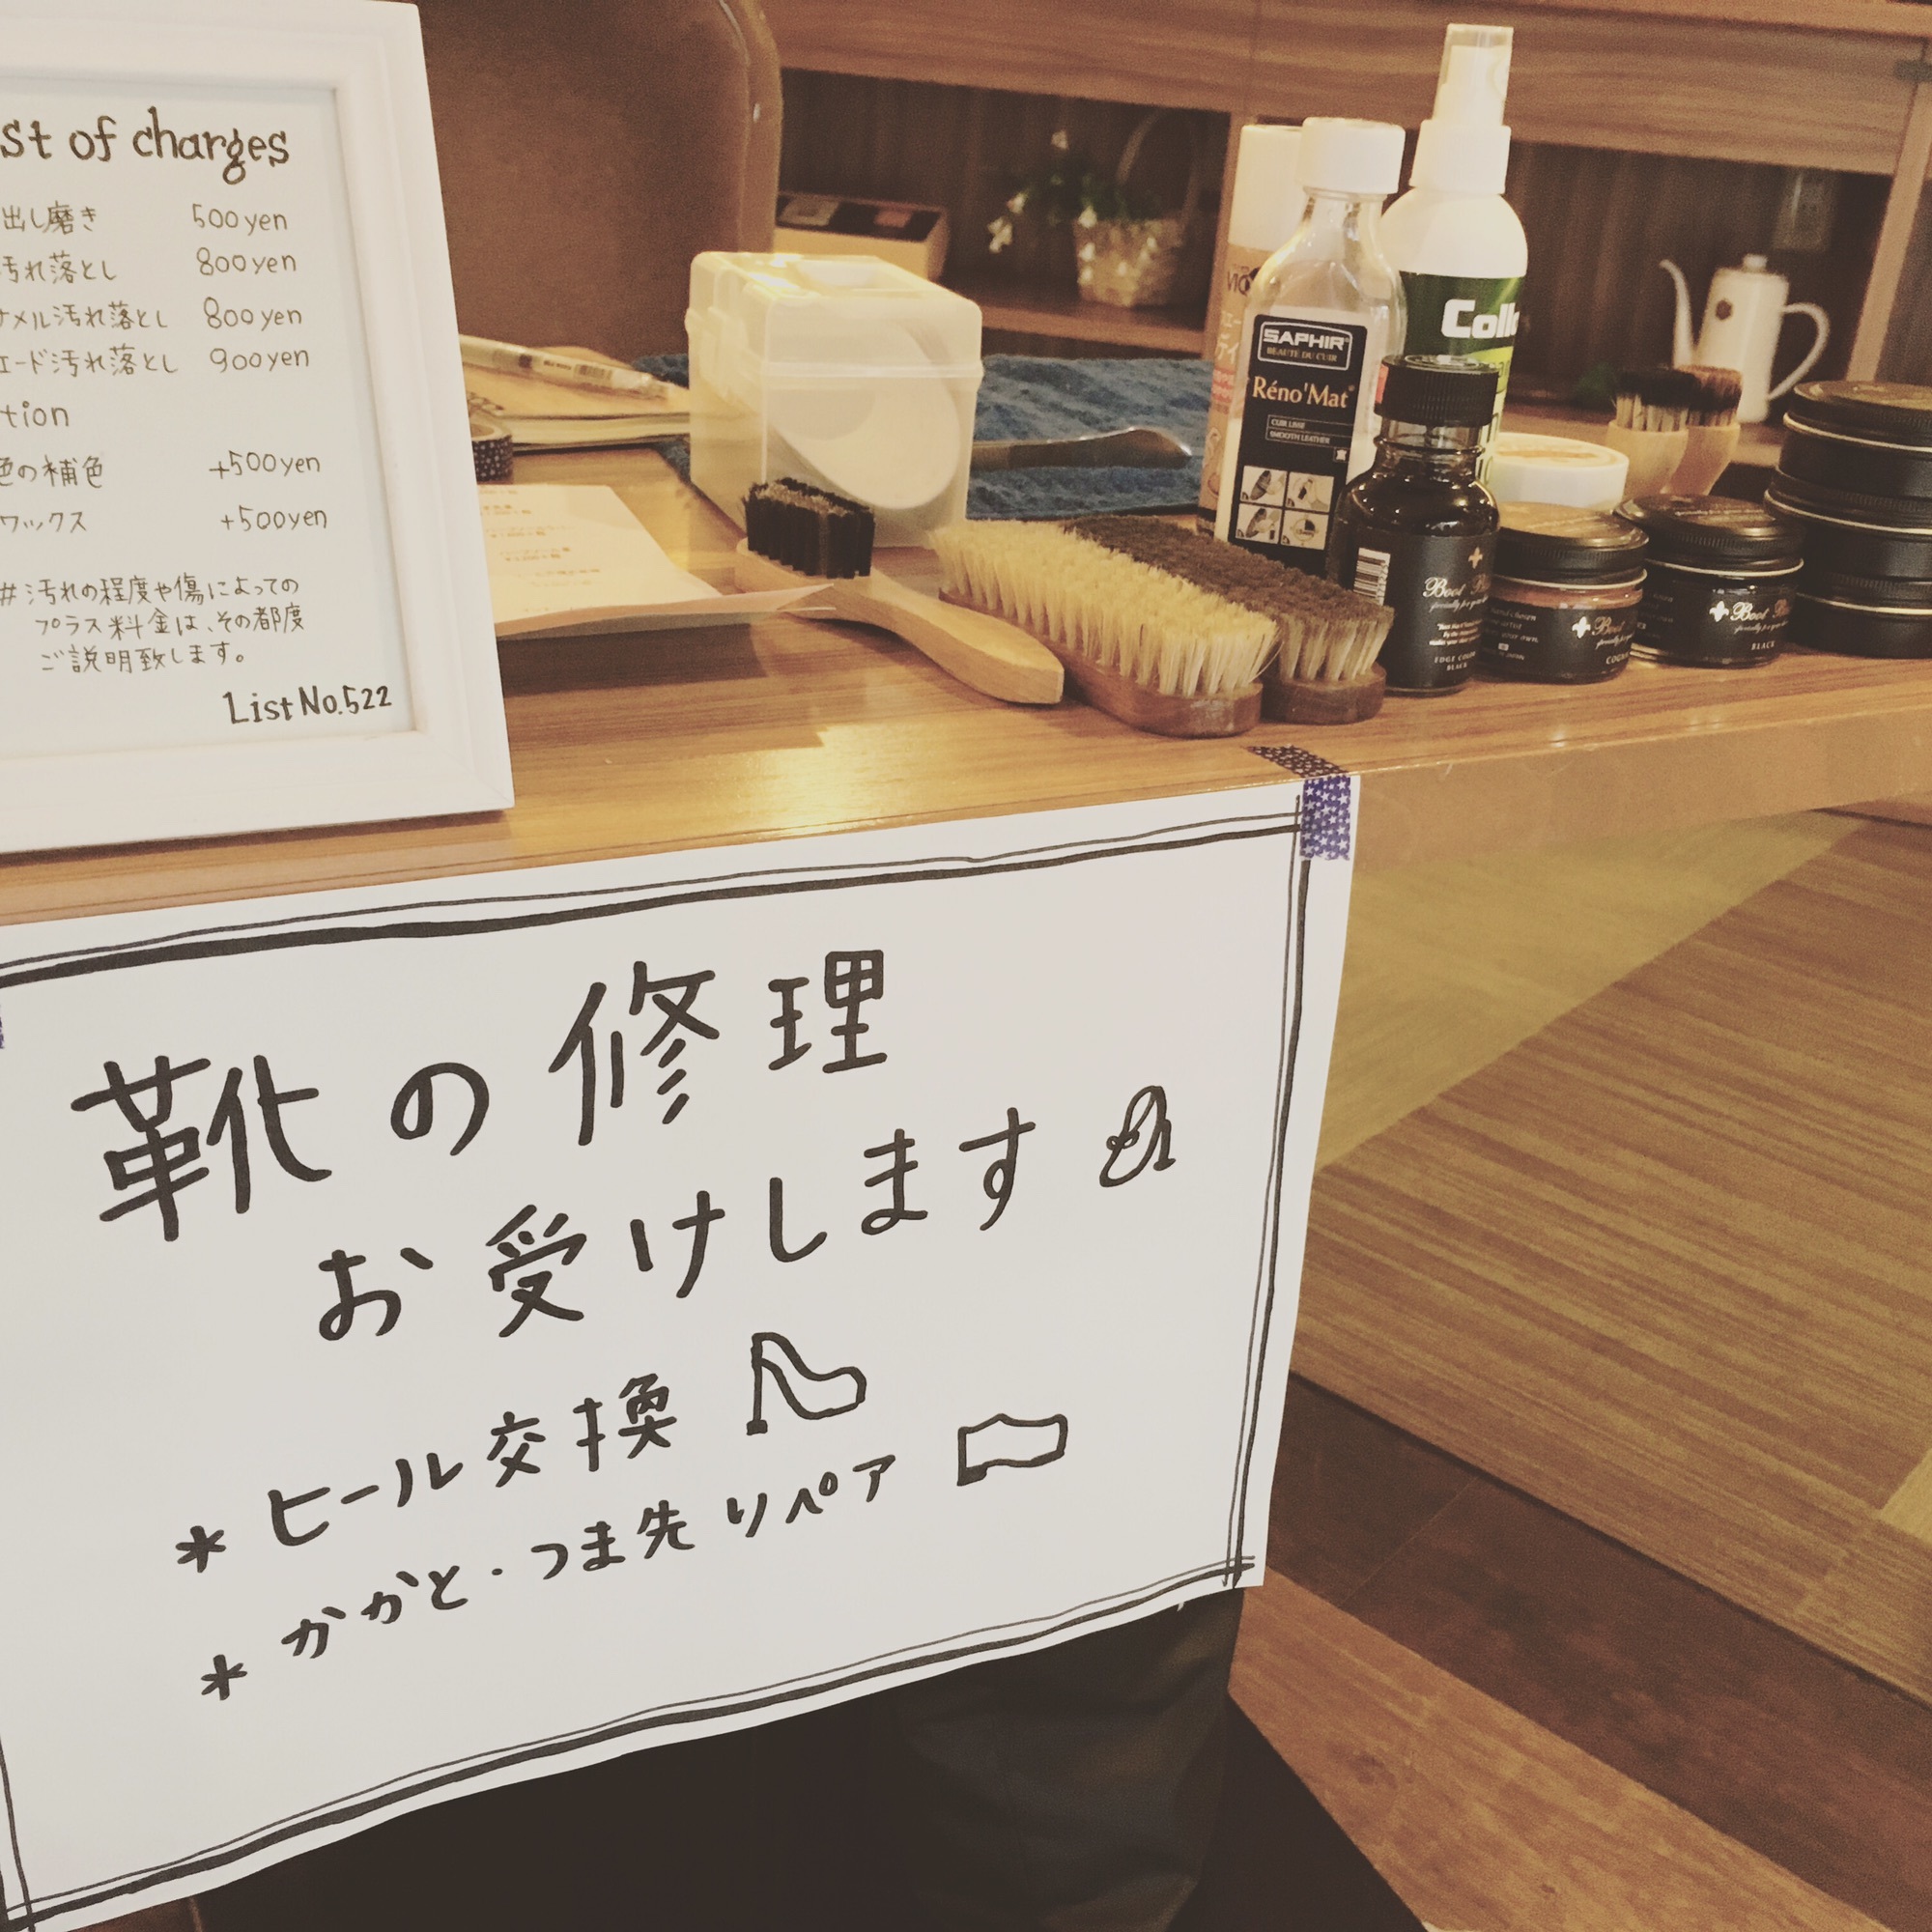 st of charges
出し磨き 500yen
汚れ落とし 800yen
メル汚れ落とし 800yen
エード汚れ落とし 900yen
tion
色の補色 +500yen
ワックス +500yen
#汚れの程度や傷によっての
プラス料金は、その都度
ご説明致します。
List No.522
SAPHIR
BEAUTÉ DU CUIR
Réno'Mat
CUIR LISSE
SMOOTH LEATHER
Coll
Boot
EDGE COLOR
BLACK
Boot
Boot
BLACK
靴の修理
お受けします
* ヒール交換
* かかと・つま先リペア